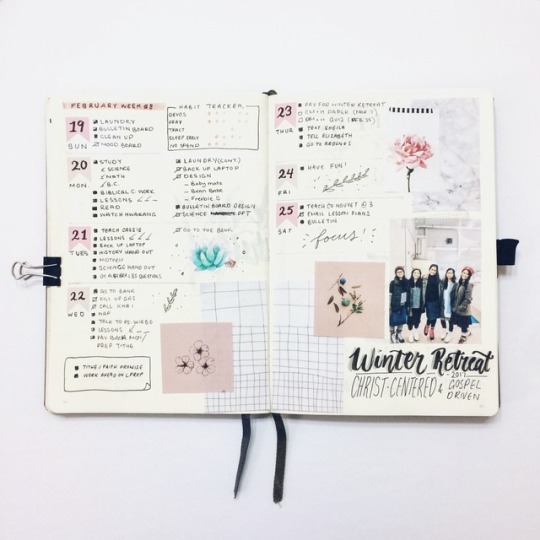 FEBRUARY WEEK #3
19
SUN
LAUNDRY
BULLETIN BOARD
CLEAN UP
MOOD BOARD
HABIT TRACKER
DEVOS
PRAY
TRACT
SLEEP EARLY
NO SPEND
20
MON
STUDY
SCIENCE
MATH
B.C.
BIBLICAL C. WORK
LESSONS
READ
WATCH HWARANG
LAUNDRY (CONT.)
BACK UP LAPTOP
DESIGN
- Baby mats
- Freebie
BULLETIN BOARD DESIGN
SCIENCE PPT
21
TUES
TEACH
LESSONS
BACK UP LAPTOP
HISTORY HAND OUT
SCIENCE HAND OUT
QUESTIONS
GO TO THE BANK
22
WED
GO TO BANK
FILL UP GAS
CALL
NAP
TALK TO
LESSONS
PREP TITHE
TITHE & FAITH PROMISE
WORK AHEAD ON LPREP
23
THUR
PAY FOR WINTER RETREAT
TEXT SHEILA
TELL ELIZABETH
GO TO
24
FRI
HAVE FUN!
25
SAT
TEACH @ 3
EMAIL LESSON PLANS
BULLETIN
focus!
Winter Retreat
- 2017 -
CHRIST-CENTERED & GOSPEL
DRIVEN